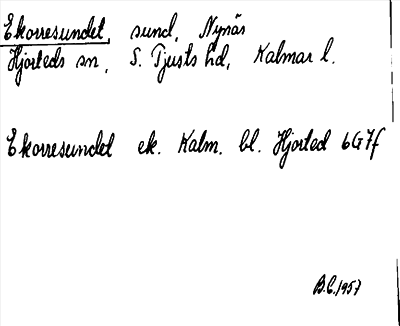 Ekorresundet, sund, Nynäs
Hjorteds sn, S. Tjusts hd, Kalmar l.
Ekorresundet ek. Kalm. bl. Hjorted 6G7f
B.C. 1957